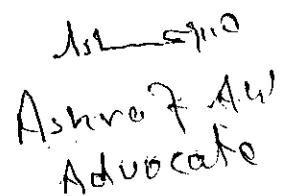 Ashraf Ali
Advocate